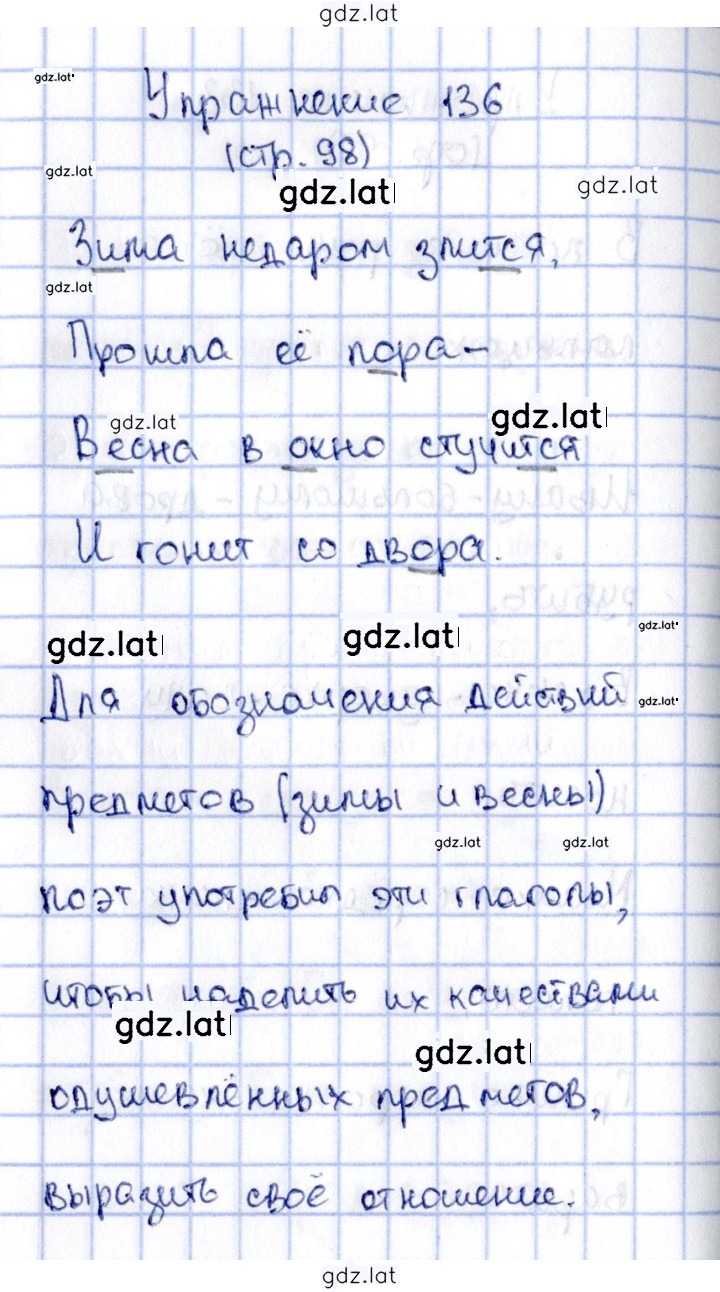 gdz.lat
gdz.lat
Упражнение 136
(стр. 98)
gdz.lat
gdz.lat
gdz.lat
Зима недаром злится,
gdz.lat
Прошла её пора-
gdz.lat
gdz.lat
Весна в окно стучится
И гонит со двора.
gdz.lat
gdz.lat
gdz.lat
Для обозначения действий
gdz.lat
предметов (зимы и весны)
gdz.lat
gdz.lat
поэт употребил эти глаголы,
чтобы наделить их качествами
gdz.lat
gdz.lat
одушевлённых предметов,
выразить своё отношение.
gdz.lat